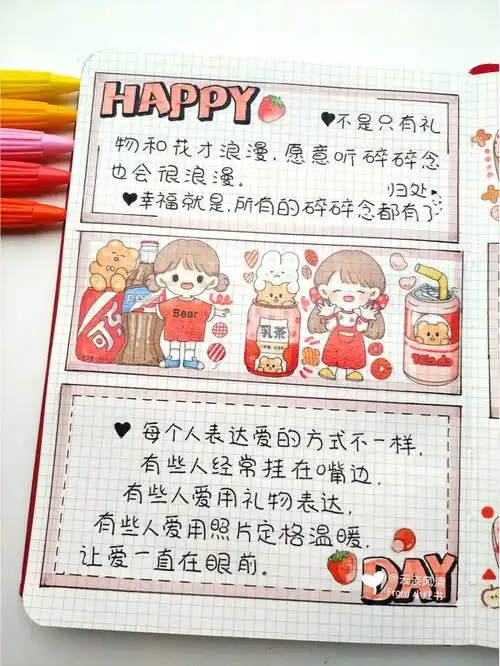 HAPPY
♥不是只有礼
物和花才浪漫,愿意听碎碎念
也会很浪漫。
归处
♥幸福就是,所有的碎碎念都有了
pepsi
可乐
Bear
乳茶
♥每个人表达爱的方式不一样,
有些人经常挂在嘴边,
有些人爱用礼物表达,
有些人爱用照片定格温暖,
让爱一直在眼前。
DAY
@云淡风清
From 小红书